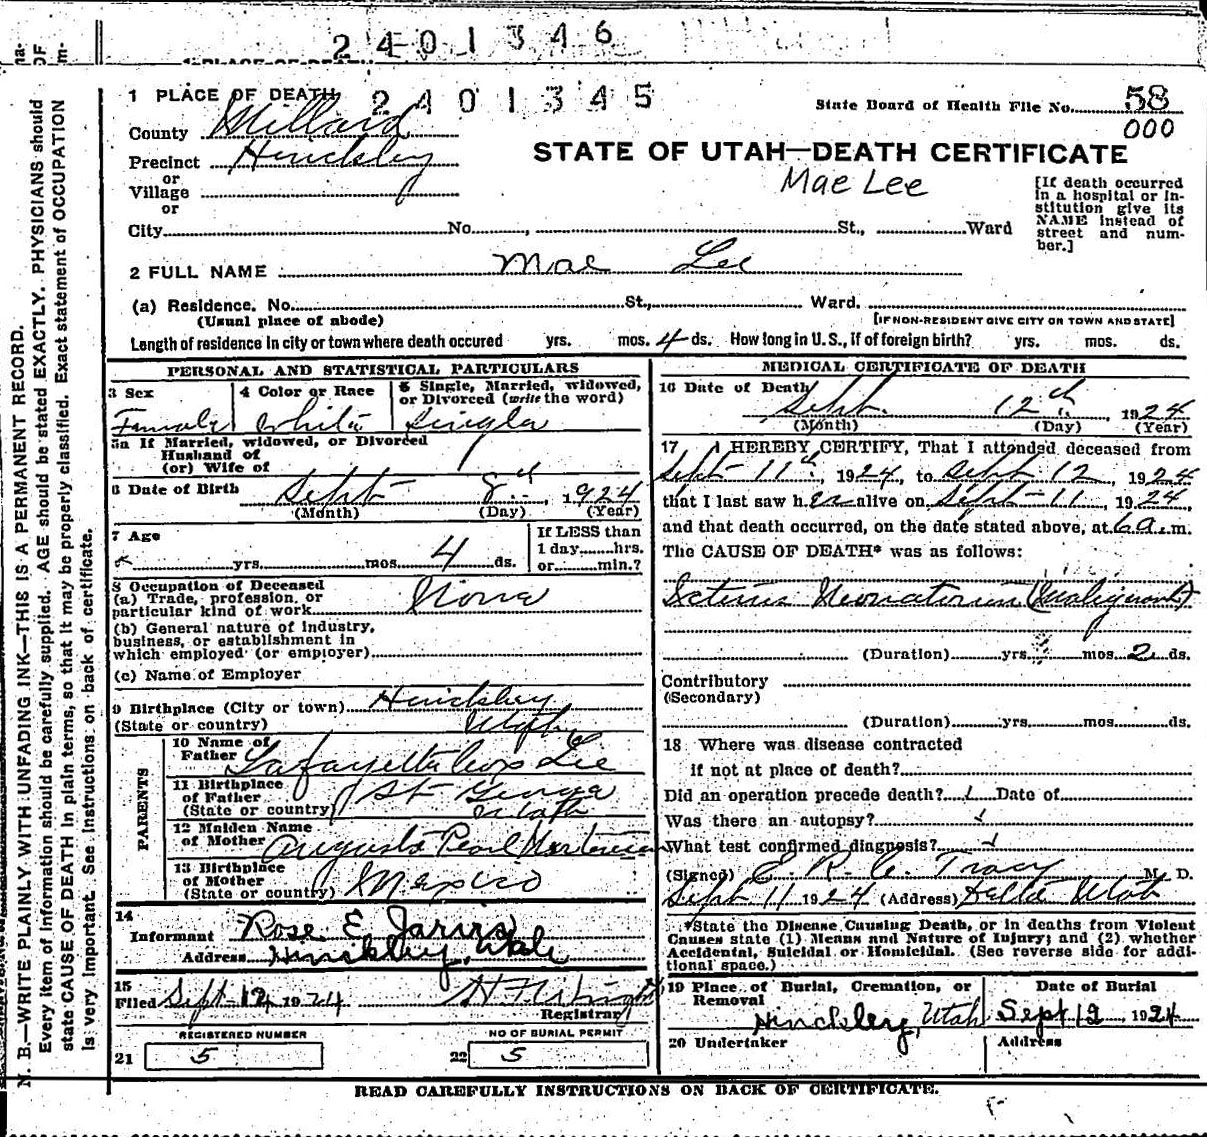 2401346
1 PLACE OF DEATH
2401345
State Board of Health File No. 58
000
County Millard
Precinct Hinckley
or
Village
or
City No. , St., Ward
STATE OF UTAH—DEATH CERTIFICATE
Mae Lee
[If death occurred
in a hospital or in-
stitution give its
NAME instead of
street and num-
ber.]
2 FULL NAME Mae Lee
(a) Residence. No. St., Ward.
(Usual place of abode) [IF NON-RESIDENT GIVE CITY OR TOWN AND STATE]
Length of residence in city or town where death occured yrs. mos. 4 ds. How long in U. S., if of foreign birth? yrs. mos. ds.
PERSONAL AND STATISTICAL PARTICULARS
3 Sex
Female
4 Color or Race
White
5 Single, Married, widowed,
or Divorced (write the word)
Single
5a If Married, widowed, or Divorced
Husband of
(or) Wife of
6 Date of Birth Sept 8th, 1924
(Month) (Day) (Year)
7 Age
yrs. mos. 4 ds.
If LESS than
1 day hrs.
or min.?
8 Occupation of Deceased
(a) Trade, profession, or
particular kind of work None
(b) General nature of industry,
business, or establishment in
which employed (or employer)
(c) Name of Employer
9 Birthplace (City or town) Hinckley
(State or country) Utah
PARENTS
10 Name of
Father Lafayette Lee
11 Birthplace
of Father St George
(State or country) Utah
12 Maiden Name
of Mother Augusta Pearl Mortensen
13 Birthplace
of Mother
(State or country) Mexico
14
Informant Rose E Jarvis
Address Hinckley, Utah
15
Filed Sept 12 1924
Registrar
REGISTERED NUMBER NO OF BURIAL PERMIT
21 5 22 5
MEDICAL CERTIFICATE OF DEATH
16 Date of Death
Sept. 12th, 1924
(Month) (Day) (Year)
17 I HEREBY CERTIFY, That I attonded deceased from
Sept 11th, 1924, to Sept 12, 1924
that I last saw her alive on Sept-11, 1924,
and that death occurred, on the date stated above, at 6a.m.
The CAUSE OF DEATH* was as follows:
Icterus Neonatorum (Malignant)
(Duration) yrs. mos. 2 ds.
Contributory
(Secondary)
(Duration) yrs. mos. ds.
18 Where was disease contracted
if not at place of death?
Did an operation precede death? Date of
Was there an autopsy?
What test confirmed diagnosis?
(Signed) E. R. C. Tracy M. D.
Sept 11 1924 (Address) Delta Utah
*State the Disease Causing Death, or in deaths from Violent
Causes state (1) Means and Nature of Injury; and (2) whether
Accidental, Suicidal or Homicidal. (See reverse side for addi-
tional space.)
19 Place of Burial, Cremation, or
Removal
Hinckley, Utah
Date of Burial
Sept 12, 1924
20 Undertaker Address
READ CAREFULLY INSTRUCTIONS ON BACK OF CERTIFICATE.
N. B.—WRITE PLAINLY WITH UNFADING INK—THIS IS A PERMANENT RECORD.
Every item of information should be carefully supplied. AGE should be stated EXACTLY. PHYSICIANS should
state CAUSE OF DEATH in plain terms, so that it may be properly classified. Exact statement of OCCUPATION
is very important. See instructions on back of certificate.